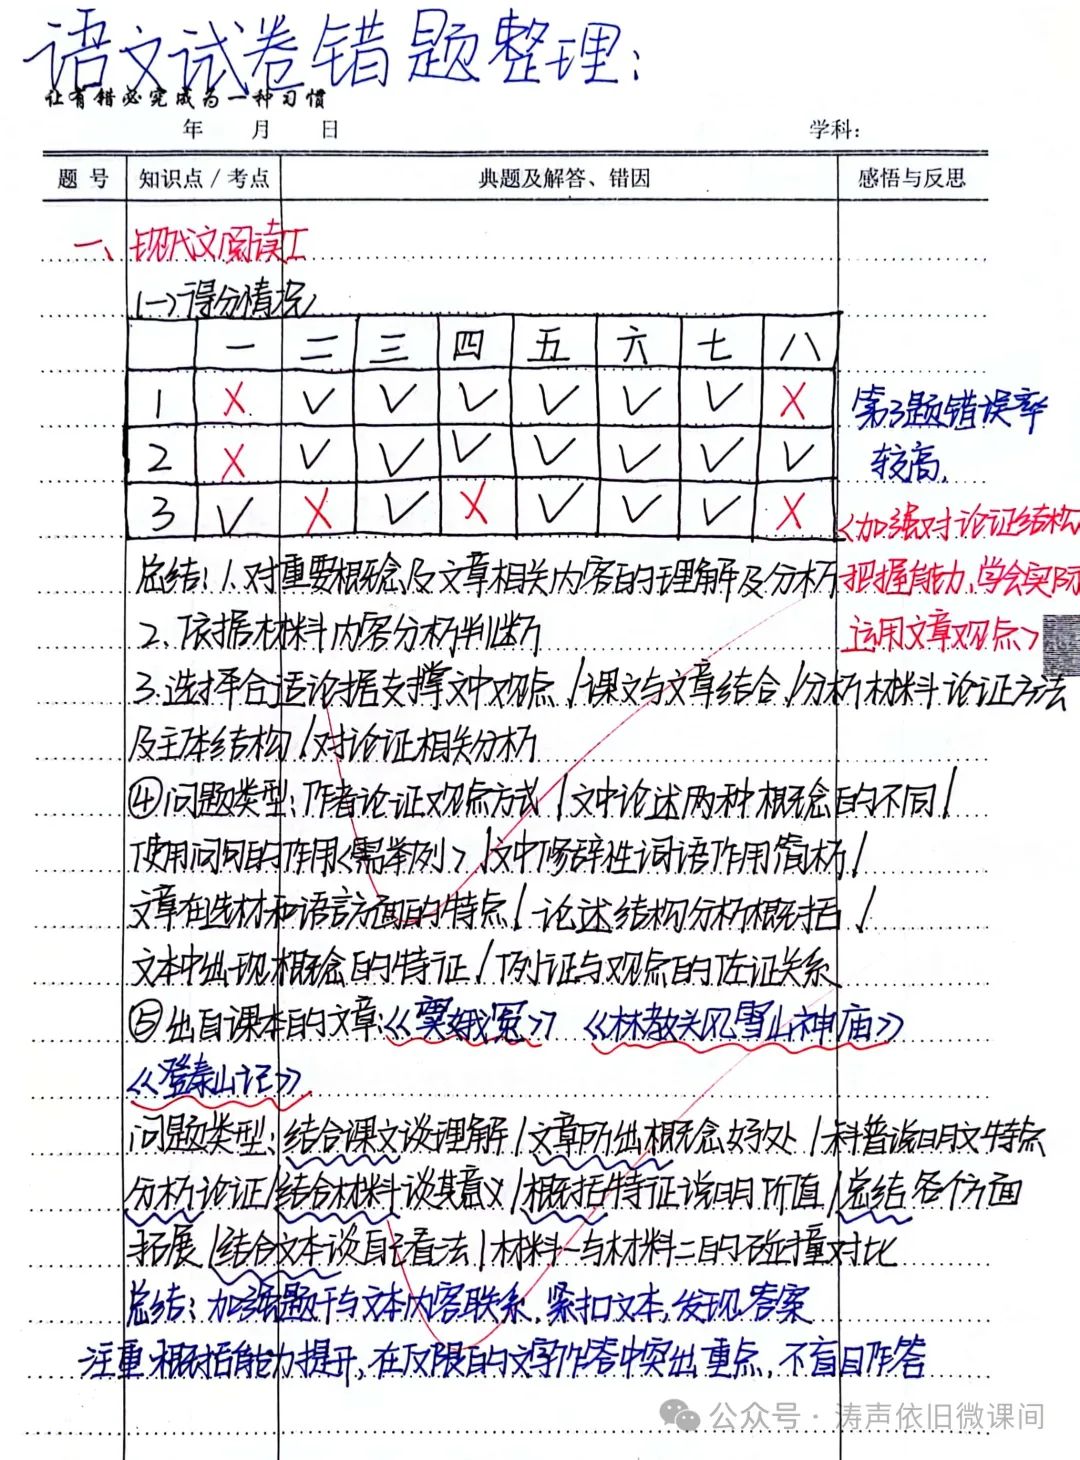 语文试卷错题整理:
让有错必究成为一种习惯
年 月 日 学科:
题号 知识点/考点 典题及解答、错因 感悟与反思
一、现代文阅读I
(一)得分情况
一 二 三 四 五 六 七 八
1 × ✓ ✓ ✓ ✓ ✓ ✓ ×
2 × ✓ ✓ ✓ ✓ ✓ ✓ ✓
3 ✓ × ✓ × ✓ ✓ ✓ ×
第3题错误率
较高.
<加强对论证结构
把握能力,学会实际
运用文章观点>
总结:1.对重要概念及文章相关内容的理解及分析
2.依据材料内容分析判断
3.选择合适论据支撑文中观点/课文与文章结合/分析材料论证方法
及主体结构/对论证相关分析
④问题类型:作者论证观点方式/文中论述两种概念的不同/
使用问句的作用<需举例>/文中修辞性词语作用简析/
文章在选材和语言方面的特点/论述结构分析概括/
文本中出现概念的特征/例证与观点的佐证关系
⑤出自课本的文章:《窦娥冤》《林教头风雪山神庙》
《登泰山记》
问题类型:结合课文谈理解/文章所出概念好处/科普说明文特点
分析论证/结合材料谈其意义/概括特征说明价值/总结各个方面
拓展/结合文本谈自己看法/材料一与材料二的碰撞对比
总结:加强题干与文本内容联系,紧扣文本,发现答案
注重概括能力提升,在仅限的文字作答中突出重点,不盲目作答
公众号·涛声依旧微课间